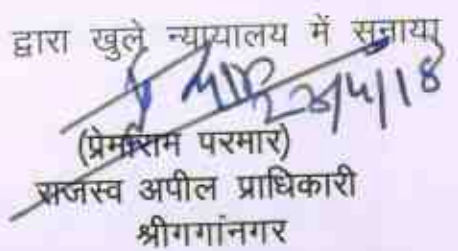 द्वारा खुले न्यायालय में सुनाया
23/4/18
(प्रेमाराम परमार)
राजस्व अपील प्राधिकारी
श्रीगगांनगर